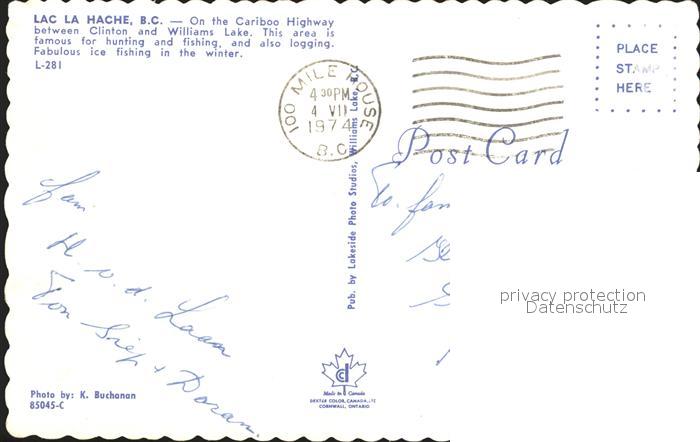 LAC LA HACHE, B.C. — On the Cariboo Highway
between Clinton and Williams Lake. This area is
famous for hunting and fishing, and also logging.
Fabulous ice fishing in the winter.
L-281
100 MILE HOUSE
4 30PM
4 VII
1974
B.C.
PLACE
STAMP
HERE
Post Card
Fam.
H. v. d. Laan
Pub. by Lakeside Photo Studios, Williams Lake, B.C.
privacy protection
Datenschutz
Made in Canada
DEXTER COLOR, CANADA, LTD
CORNWALL, ONTARIO
Photo by: K. Buchanan
85045-C